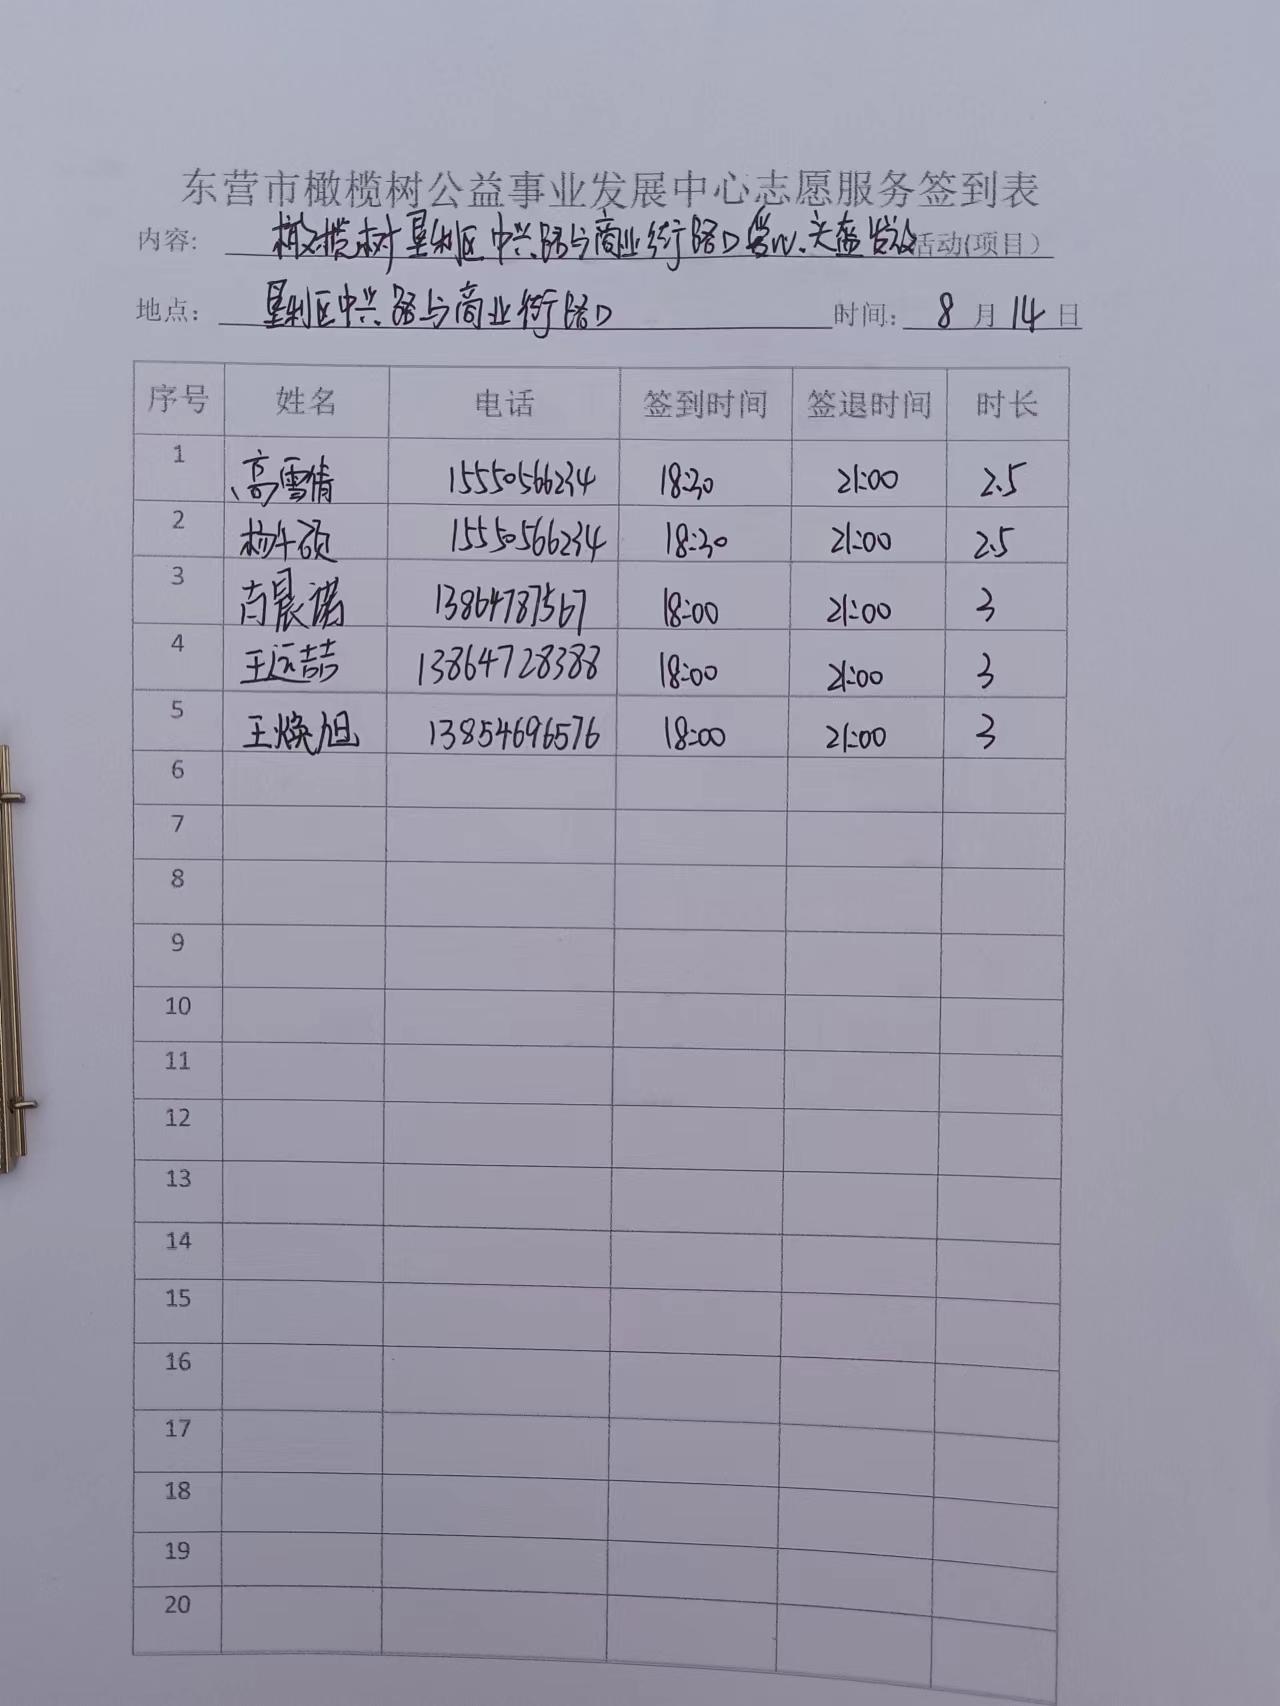 东营市橄榄树公益事业发展中心志愿服务签到表
内容: 橄榄树垦利区中兴路与商业街路口爱心头盔发放活动(项目)
地点: 垦利区中兴路与商业街路口 时间: 8月14日
序号 姓名 电话 签到时间 签退时间 时长
1 高雪倩 15550566234 18:30 21:00 2.5
2 杨午硕 15550566234 18:30 21:00 2.5
3 晨诺 13864787567 18:00 21:00 3
4 王远喆 13864728388 18:00 21:00 3
5 王焕旭 13854696576 18:00 21:00 3
6
7
8
9
10
11
12
13
14
15
16
17
18
19
20